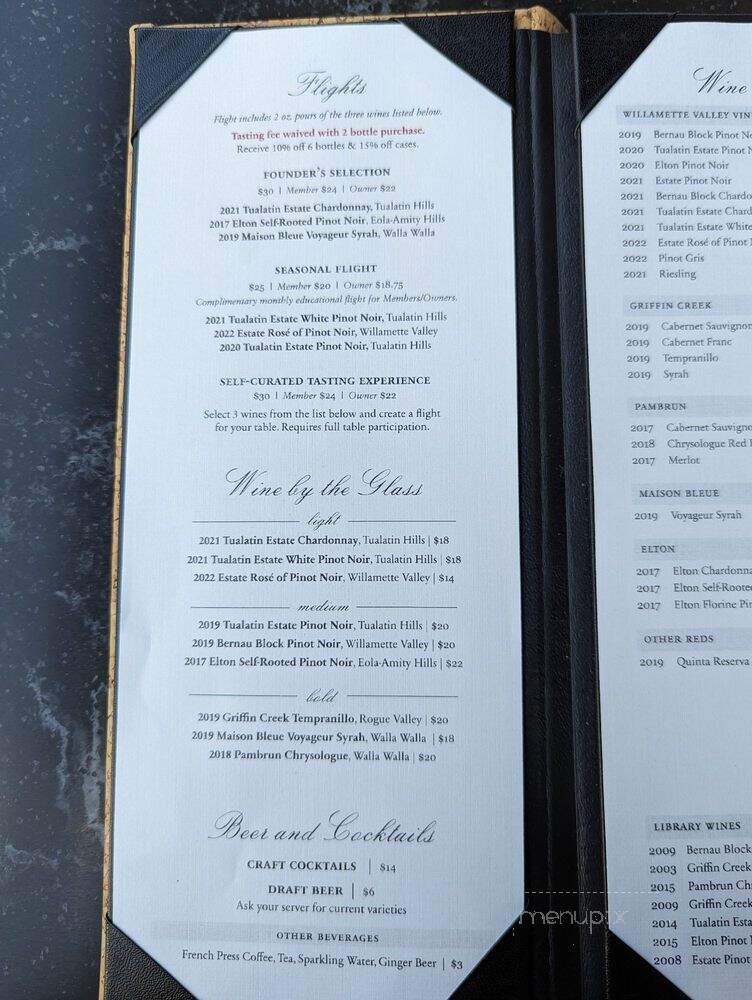 Flights
Flight includes 2 oz. pours of the three wines listed below.
Tasting fee waived with 2 bottle purchase.
Receive 10% off 6 bottles & 15% off cases.
FOUNDER'S SELECTION
$30 | Member $24 | Owner $22
2021 Tualatin Estate Chardonnay, Tualatin Hills
2017 Elton Self-Rooted Pinot Noir, Eola-Amity Hills
2019 Maison Bleue Voyageur Syrah, Walla Walla
SEASONAL FLIGHT
$25 | Member $20 | Owner $18.75
Complimentary monthly educational flight for Members/Owners.
2021 Tualatin Estate White Pinot Noir, Tualatin Hills
2022 Estate Rosé of Pinot Noir, Willamette Valley
2020 Tualatin Estate Pinot Noir, Tualatin Hills
SELF-CURATED TASTING EXPERIENCE
$30 | Member $24 | Owner $22
Select 3 wines from the list below and create a flight
for your table. Requires full table participation.
Wine by the Glass
light
2021 Tualatin Estate Chardonnay, Tualatin Hills | $18
2021 Tualatin Estate White Pinot Noir, Tualatin Hills | $18
2022 Estate Rosé of Pinot Noir, Willamette Valley | $14
medium
2019 Tualatin Estate Pinot Noir, Tualatin Hills | $20
2019 Bernau Block Pinot Noir, Willamette Valley | $20
2017 Elton Self-Rooted Pinot Noir, Eola-Amity Hills | $22
bold
2019 Griffin Creek Tempranillo, Rogue Valley | $20
2019 Maison Bleue Voyageur Syrah, Walla Walla | $18
2018 Pambrun Chrysologue, Walla Walla | $20
Beer and Cocktails
CRAFT COCKTAILS | $14
DRAFT BEER | $6
Ask your server for current varieties
OTHER BEVERAGES
French Press Coffee, Tea, Sparkling Water, Ginger Beer | $3
Wine
WILLAMETTE VALLEY VIN
2019 Bernau Block Pinot No
2020 Tualatin Estate Pinot N
2020 Elton Pinot Noir
2021 Estate Pinot Noir
2021 Bernau Block Chardo
2021 Tualatin Estate Chard
2021 Tualatin Estate White
2022 Estate Rosé of Pinot
2022 Pinot Gris
2021 Riesling
GRIFFIN CREEK
2019 Cabernet Sauvignon
2019 Cabernet Franc
2019 Tempranillo
2019 Syrah
PAMBRUN
2017 Cabernet Sauvigno
2018 Chrysologue Red
2017 Merlot
MAISON BLEUE
2019 Voyageur Syrah
ELTON
2017 Elton Chardonna
2017 Elton Self-Rooted
2017 Elton Florine Pin
OTHER REDS
2019 Quinta Reserva
LIBRARY WINES
2009 Bernau Block
2003 Griffin Creek
2015 Pambrun Ch
2009 Griffin Creek
2014 Tualatin Esta
2015 Elton Pinot
2008 Estate Pinot
menupix